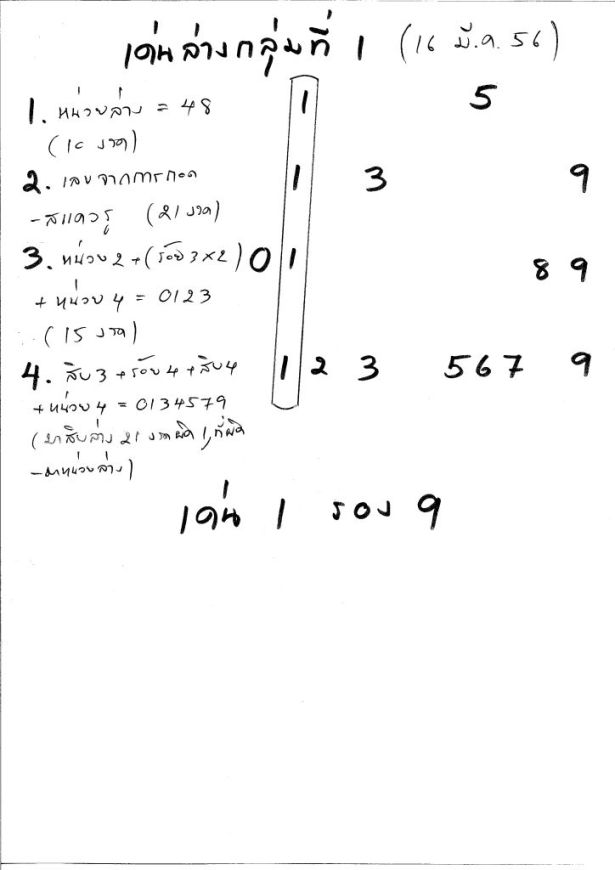 เด่นล่างกลุ่มที่ 1 (16 มี.ค. 56)
1. หน่วยล่าง = 48 1 5
(10 งวด)
2. เลขจากการถอด 1 3 9
-สแควรู (21 งวด)
3. หน่วย 2 + (ร้อย 3 × 2) 0 1 8 9
+ หน่วย 4 = 0123
(15 งวด)
4. สิบ 3 + ร้อย 4 + สิบ 4 1 2 3 5 6 7 9
+ หน่วย 4 = 0134579
(มาสิบล่าง 21 งวดผิด 1, ที่ผิด
-มาหน่วยล่าง)
เด่น 1 รอง 9